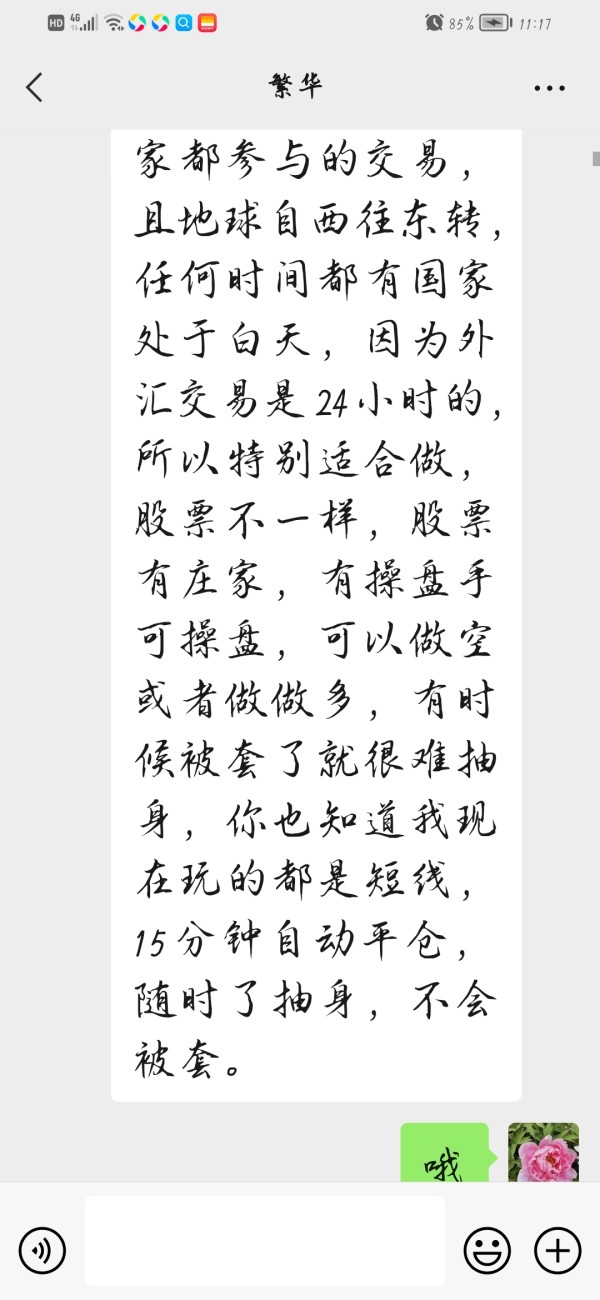 HD 4G 85% 11:17
繁华
家都参与的交易，
且地球自西往东转，
任何时间都有国家
处于白天，因为外
汇交易是24小时的，
所以特别适合做，
股票不一样，股票
有庄家，有操盘手
可操盘，可以做空
或者做做多，有时
候被套了就很难抽
身，你也知道我现
在玩的都是短线，
15分钟自动平仓，
随时了抽身，不会
被套。
哦